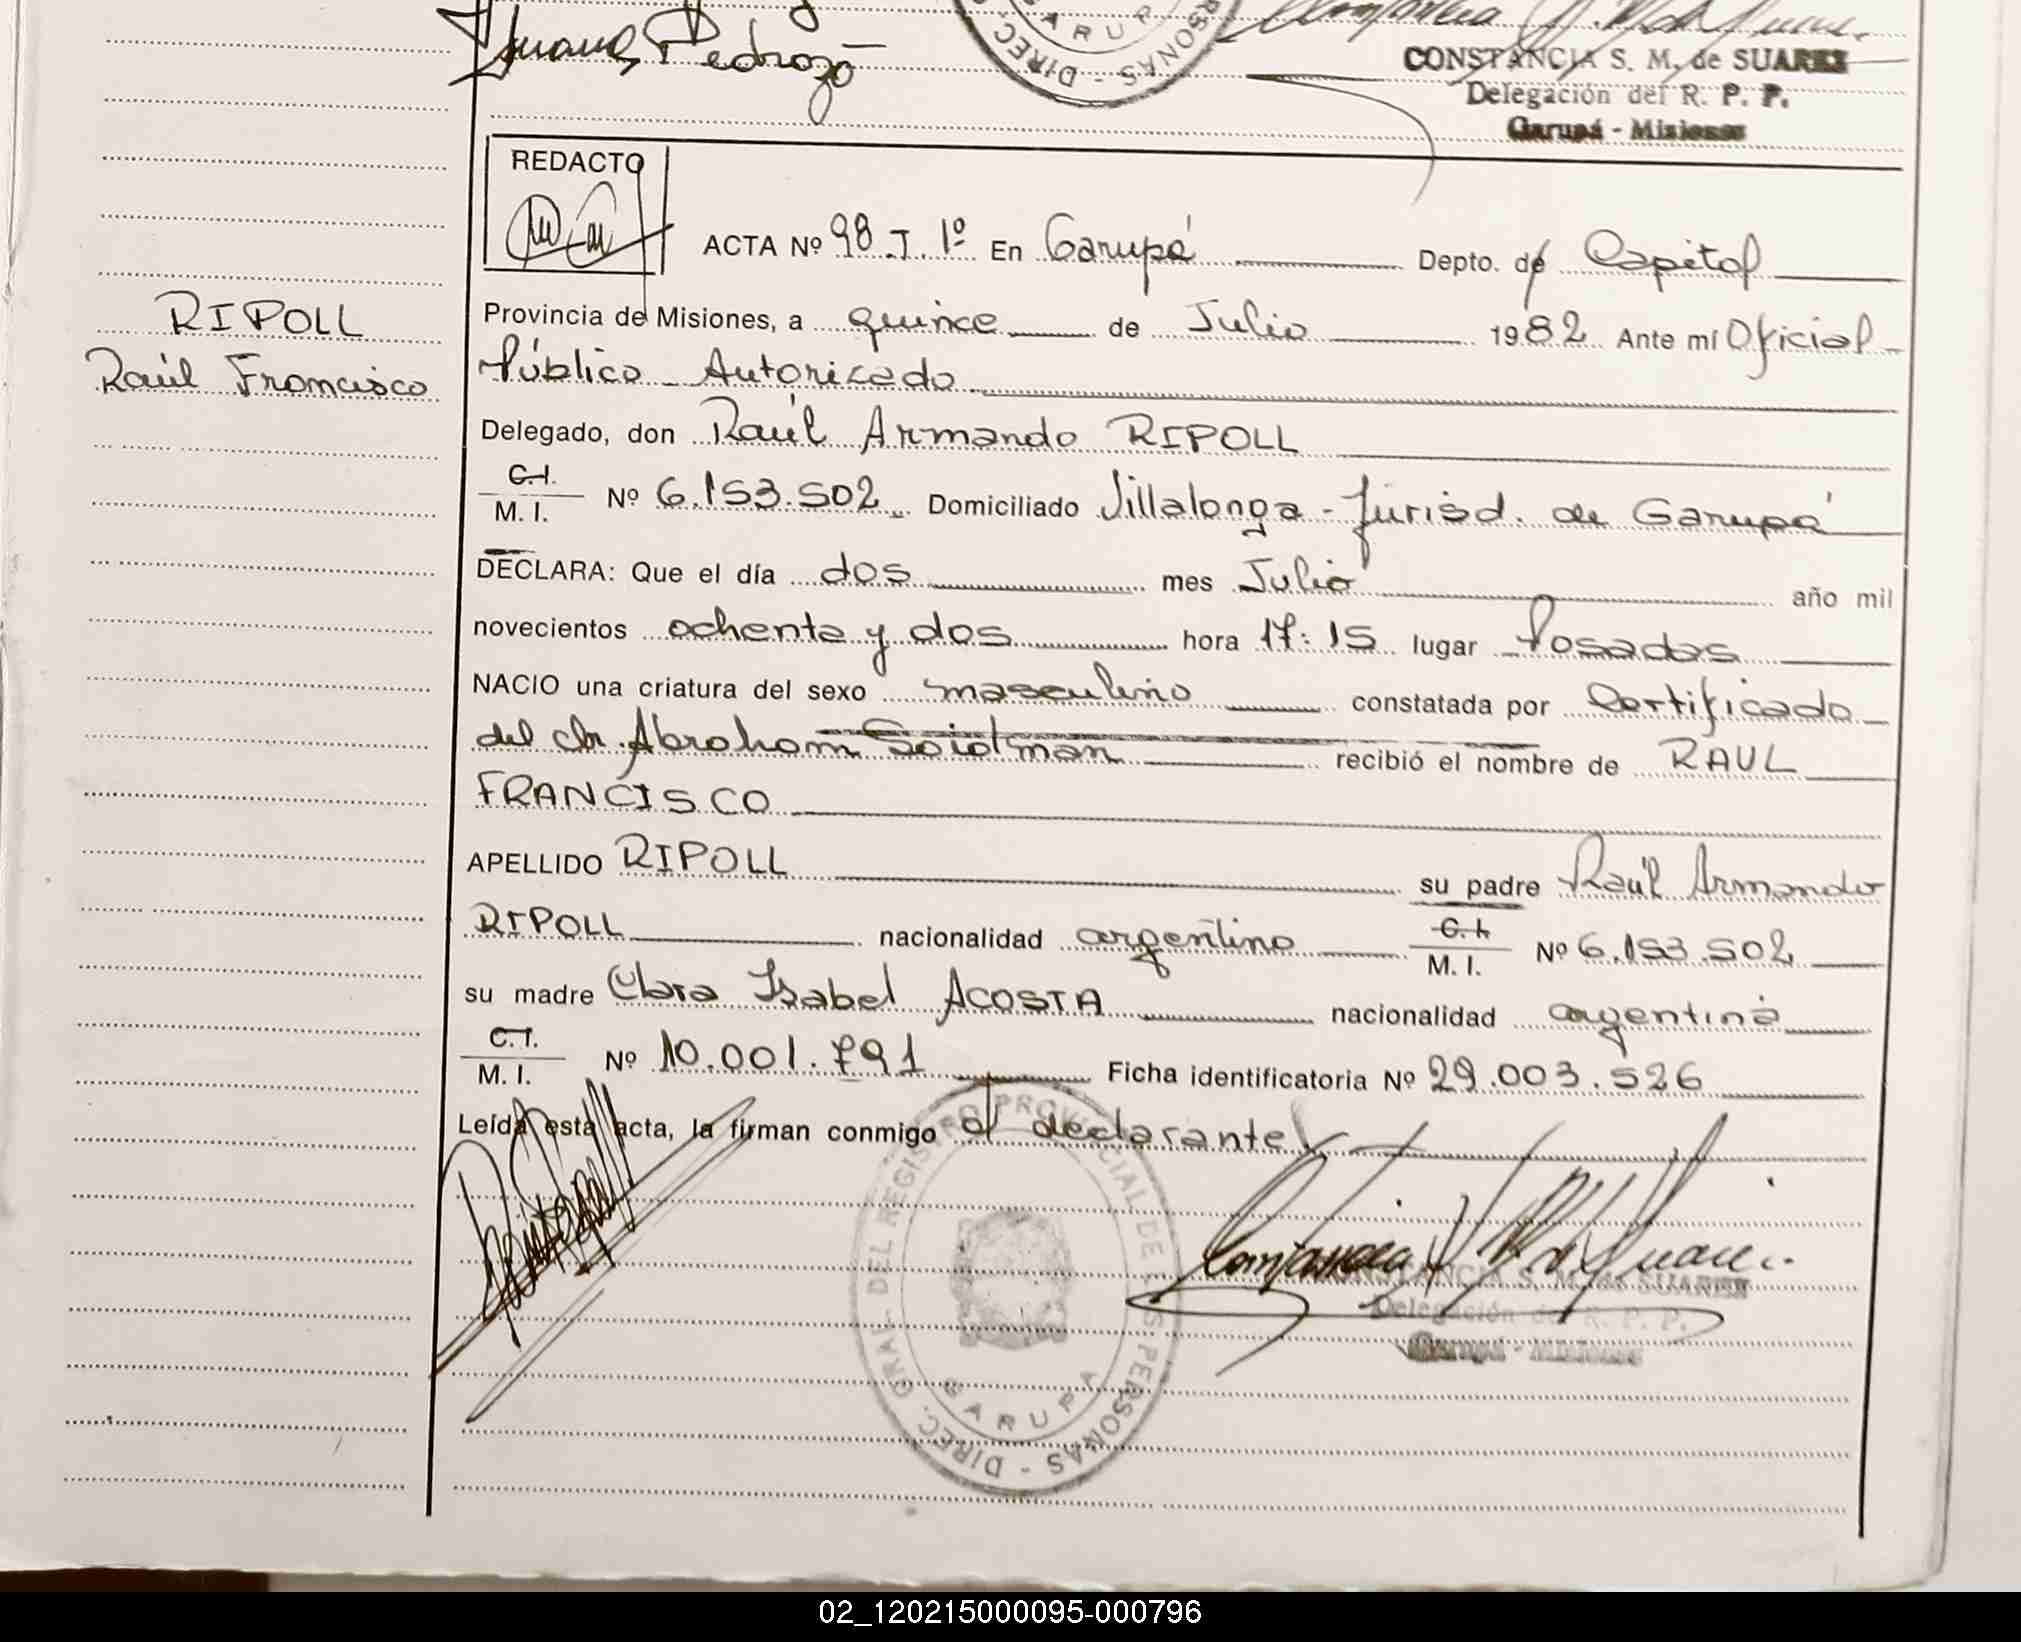 Juana Pedrozo
GARUPA
PERSONAS - DIREC.
CONSTANCIA S. M. de SUAREZ
Delegación del R. P. P.
Garupá - Misiones
REDACTO
ACTA Nº 98 T. 1º En Garupá Depto. de Capital
RIPOLL
Raúl Francisco
Provincia de Misiones, a quince de Julio 1982 Ante mí Oficial
Público Autorizado
Delegado, don Raúl Armando RIPOLL
C.I.
M. I. Nº 6.153.502 Domiciliado Villalonga - Jurisd. de Garupá
DECLARA: Que el día dos mes Julio año mil
novecientos ochenta y dos hora 17:15 lugar Posadas
NACIO una criatura del sexo masculino constatada por Certificado
del dr. Abraham recibió el nombre de RAUL
FRANCISCO
APELLIDO RIPOLL su padre Raúl Armando
RIPOLL nacionalidad argentino C.I.
M. I. Nº 6.153.502
su madre Clara Isabel ACOSTA nacionalidad argentina
C.I.
M. I. Nº 10.001.791 Ficha identificatoria Nº 29.003.526
Leída esta acta, la firman conmigo el declarante
DIREC. GRAL. DEL REGISTRO PROVINCIAL DE LAS PERSONAS -
GARUPA
CONSTANCIA S. M. de SUAREZ
Delegación del R. P. P.
Garupá - Misiones
02_120215000095-000796